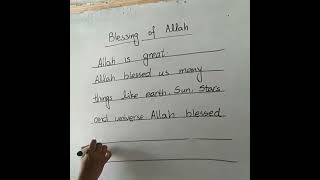 Blessing of Allah
Allah is great.
Allah blessed us many
things like earth, Sun, Stars
and universe Allah blessed